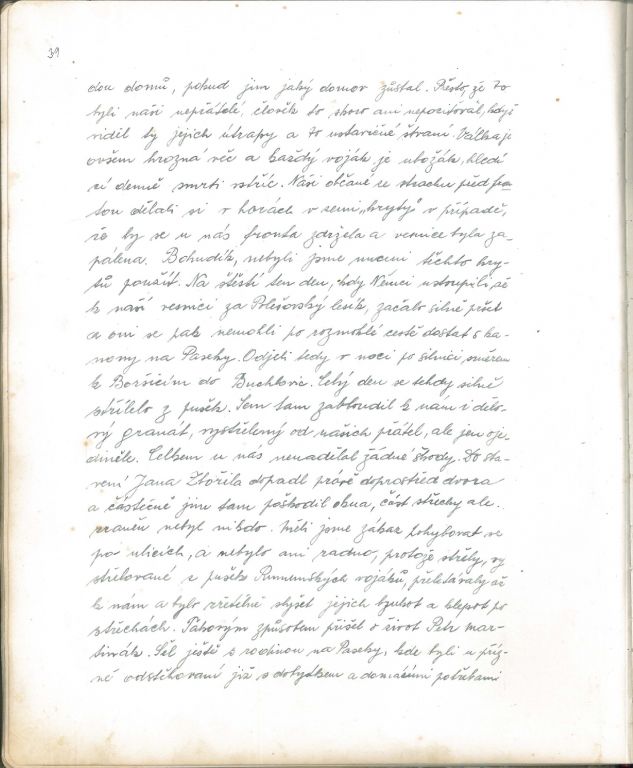 39
dou domů, pokud jim jaký domov zůstal. Přesto, že to
byli naši nepřátelé, člověk to skoro ani nepozitoval, když
viděl ty jejich útrapy a to ustavičné štraní. Válka je
ovšem hrozná věc a každý voják je ubožák, hledí
cí denně smrti vstříc. Naši občané ze strachu před fron
tou dělali si v horách v zemi „kryty" v případě,
že by se u nás fronta zdržela a vesnice byla za-
pálena. Bohudík, nebyli jsme nuceni těchto kry-
tů použít. Na štěstí ten den, kdy Němci ustoupili, až
k naší vesnici za Polešovský lesík, začalo silně pršet
a oni se pak nemohli po rozmoklé cestě dostat s ka-
nony na Paseky. Odjeli tedy v noci po silnici směrem
k Boršicím do Buchlovic. Celý den se tehdy silně
střílelo z pušek. Sem tam zabloudil k nám i dělo-
vý granát, vystřelený od našich přátel, ale jen oje-
diněle. Celkem u nás nenadělal žádné škody. Do sta-
vení Jana Zbořila dopadl právě doprostřed dvora
a částečně jim tam poškodil okna, část střechy ale.
zraněn nebyl nikdo. Měli jsme zákaz pohybovat se
po ulicích, a nebylo ani radno, protože střely, vy
střelované z pušek Rumunských vojáků, přelétávaly až
k nám a bylo zřetelně slyšet jejich bzukot a klepot po
střechách. Takovým způsobem přišel o život Petr Mar-
tinák. Šel ještě s rodinou na Paseky, kde byli u příz-
ně odstěhovaní již s dobytkem a domácími potřebami